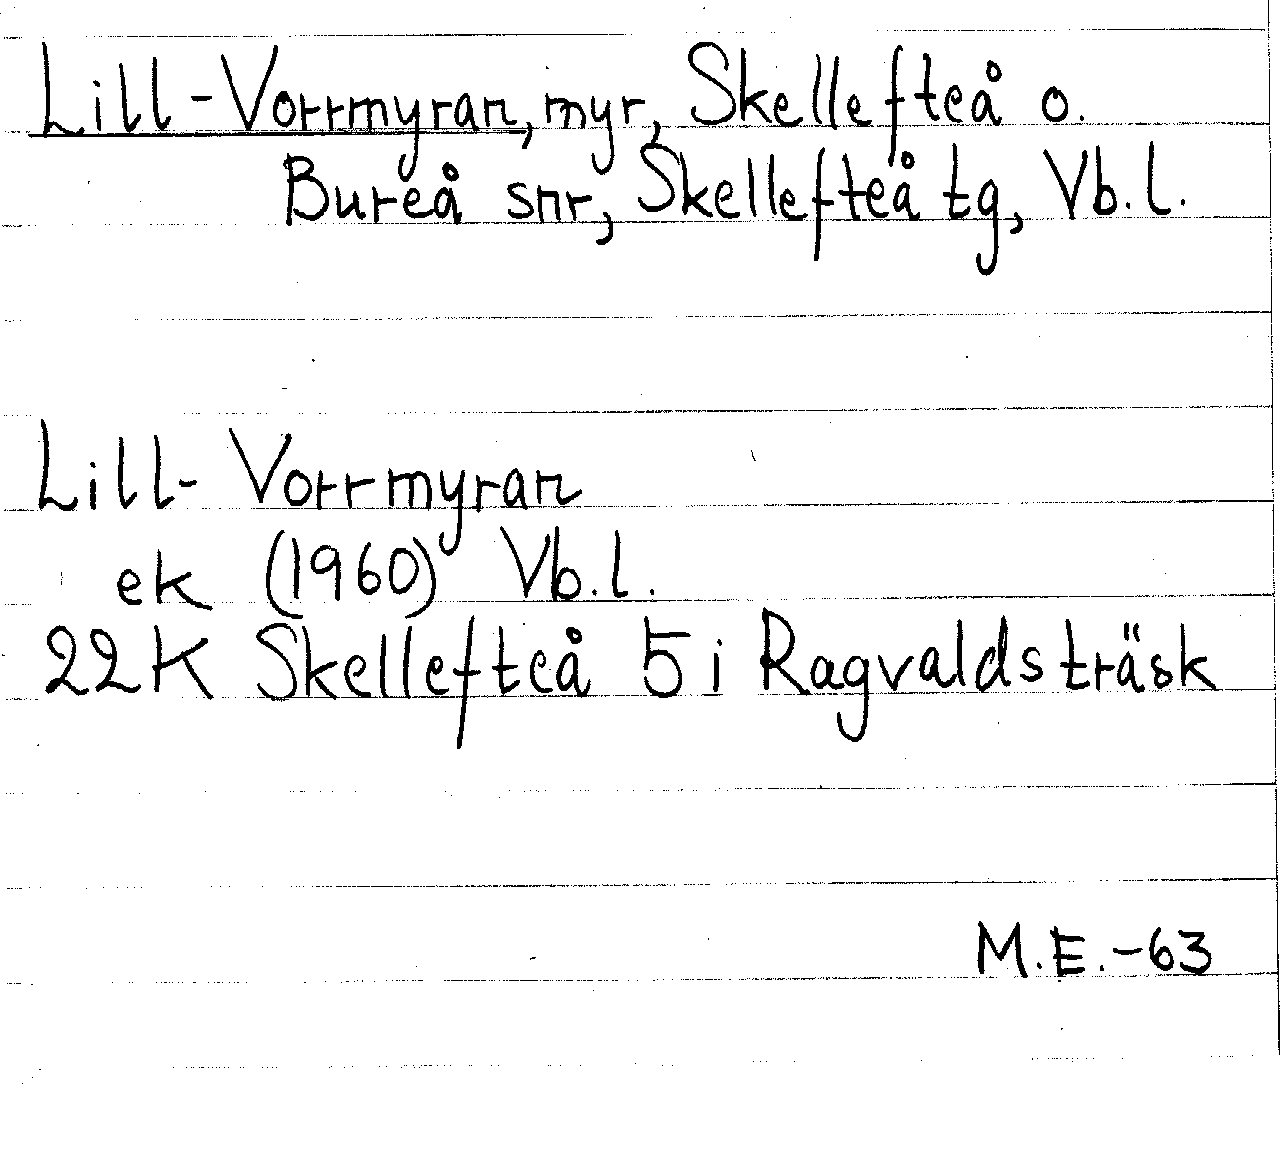 Lill-Vorrmyran, myr, Skellefteå o.
Bureå snr, Skellefteå tg, Vb.l.
Lill-Vorrmyran
ek (1960) Vb.l.
22K Skellefteå 5 i Ragvaldsträsk
M.E.-63